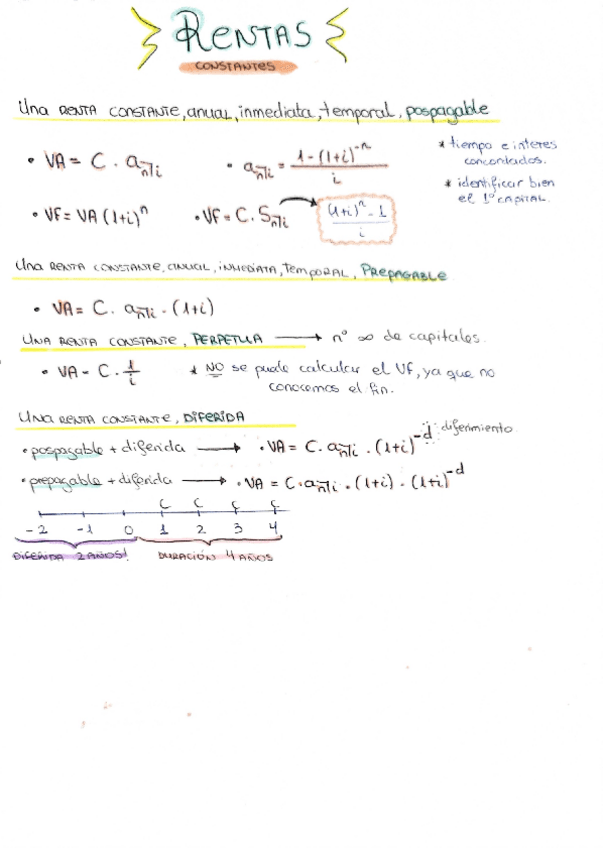 RENTAS
CONSTANTES
Una RENTA CONSTANTE, anual, inmediata, temporal, pospagable
• VA = C · a n̅|i
• a n̅|i = (1-(1+i)^-n) / i
* tiempo e interes
concordados.
* identificar bien
el 1º CAPITAL.
• VF = VA (1+i)^n
• VF = C. S n̅|i → ((1+i)^n - 1) / i
Una RENTA CONSTANTE, ANUAL, INMEDIATA, TEMPORAL, PREPAGABLE
• VA = C. a n̅|i · (1+i)
UNA RENTA CONSTANTE, PERPETUA → nº ∞ de capitales.
• VA = C · 1/i
* NO se puede calcular el VF, ya que no
conocemos el fin.
UNA RENTA CONSTANTE, DIFERIDA
• pospagable + diferida → • VA = C · a n̅|i · (1+i)^-d : diferimiento
• prepagable + diferida → • VA = C · a n̅|i · (1+i) · (1+i)^-d
C C C C
-2 -1 0 1 2 3 4
DIFERIDA 2 AÑOS! DURACIÓN 4 AÑOS